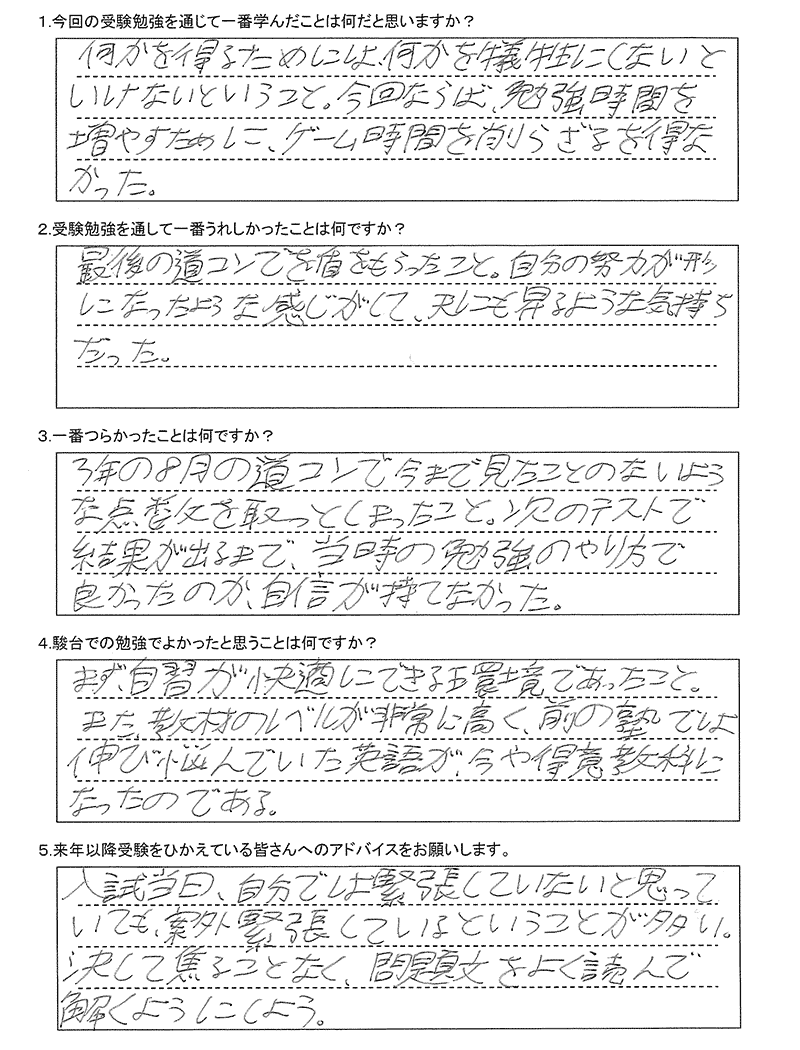 1.今回の受験勉強を通じて一番学んだことは何だと思いますか？
何かを得るためには、何かを犠牲にしないと
いけないということ。今回ならば、勉強時間を
増やすために、ゲーム時間を削らざるを得な
かった。
2.受験勉強を通して一番うれしかったことは何ですか？
最後の道コンで盾をもらったこと。自分の努力が形
になったような感じがして、天にも昇るような気持ち
だった。
3.一番つらかったことは何ですか？
3年の8月の道コンで今まで見たことのないよう
な点数を取ってしまったこと。次のテストで
結果が出るまで、当時の勉強のやり方で
良かったのか、自信が持てなかった。
4.駿台での勉強でよかったと思うことは何ですか？
まず、自習が快適にできる環境であったこと。
また、教材のレベルが非常に高く、前の塾では
伸び悩んでいた英語が、今や得意教科に
なったのである。
5.来年以降受験をひかえている皆さんへのアドバイスをお願いします。
入試当日、自分では緊張していないと思って
いても、案外緊張しているということが多い。
決して焦ることなく、問題文をよく読んで
解くようにしよう。